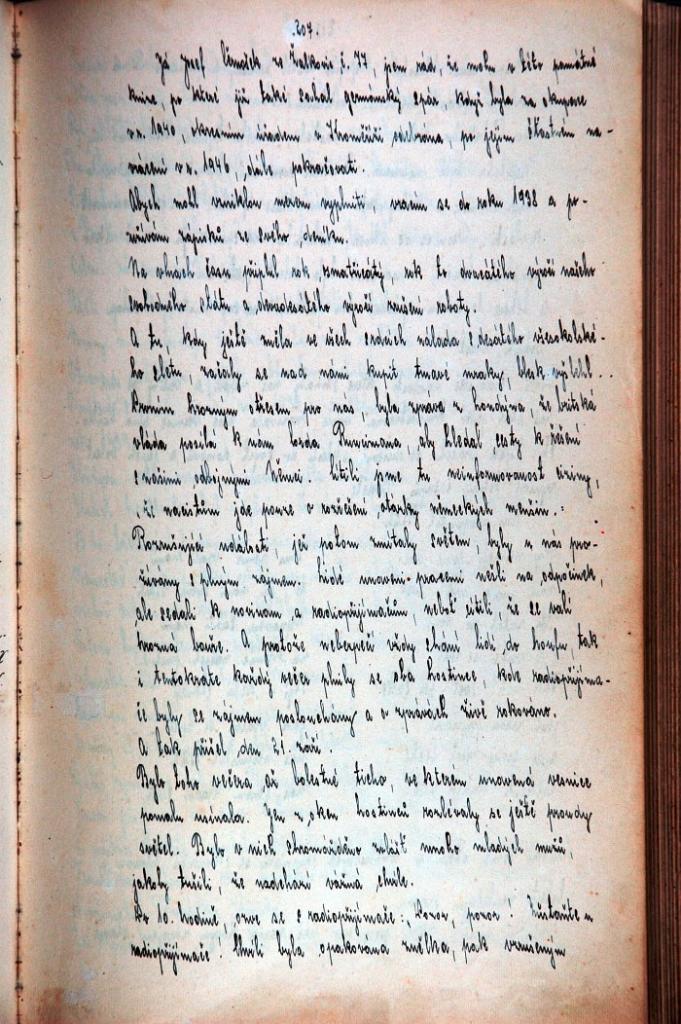 207.
Já Josef z Žalkovic č. 77, jsem rád, že mohu v této památné
knize, po které již také sahal germánský spár, když byla za okupace
v r. 1940, okresním úřadem v Kroměříži odebrána, po jejím šťastném na-
vrácení v r. 1946, dále pokračovati.
Abych mohl vzniklou mezeru vyplniti, vracím se do roku 1938 a po-
užívám zápisků ze svého deníku.
Na vlnách času připlul rok osmatřicátý, rok to dvacátého výročí našeho
svobodného státu a devadesátého výročí zrušení roboty.
A tu, kdy ještě zněla ve všech srdcích nálada z desátého všesokolské-
ho sletu, začaly se nad námi kupit tmavé mraky, blesk vyšlehl...
Prvním hrozným otřesem pro nás, byla zpráva z Londýna, že britská
vláda posílá k nám lorda Runcimana, aby hledal cesty k řešení
s našimi odbojnými Němci. Cítili jsme tu neinformovanost ciziny,
že nacistům jde pouze o rozřešení otázky německých menšin.:
Rozrušující události, jež potom zmítaly světem, byly u nás pro-
žívány s plným zájmem. Lidé unaveni prací nešli na odpočinek,
ale sedali k novinám a radiopřijímačům, neboť cítili, že se valí
hrozná bouře. A protože nebezpečí vždy shání lidi do houfu, tak
i tentokráte každý večer plnily se oba hostince, kde radiopřijíma-
če byly se zájmem poslouchány a o zprávách živě rokováno.
A tak přišel den 21. září.
Bylo toho večera až bolestné ticho, ve kterém unavená vesnice
pomalu usínala. Jen z oken hostinců rozlévaly se ještě proudy
světel. Bylo v nich shromážděno zvlášť mnoho mladých mužů,
jakoby tušili, že nadchází vážná chvíle.
Po 10. hodině, ozve se z radiopřijímače: „Pozor, pozor! Zůstaňte u
radiopřijímače! Chvíli byla opakována znělka, pak vzrušeným